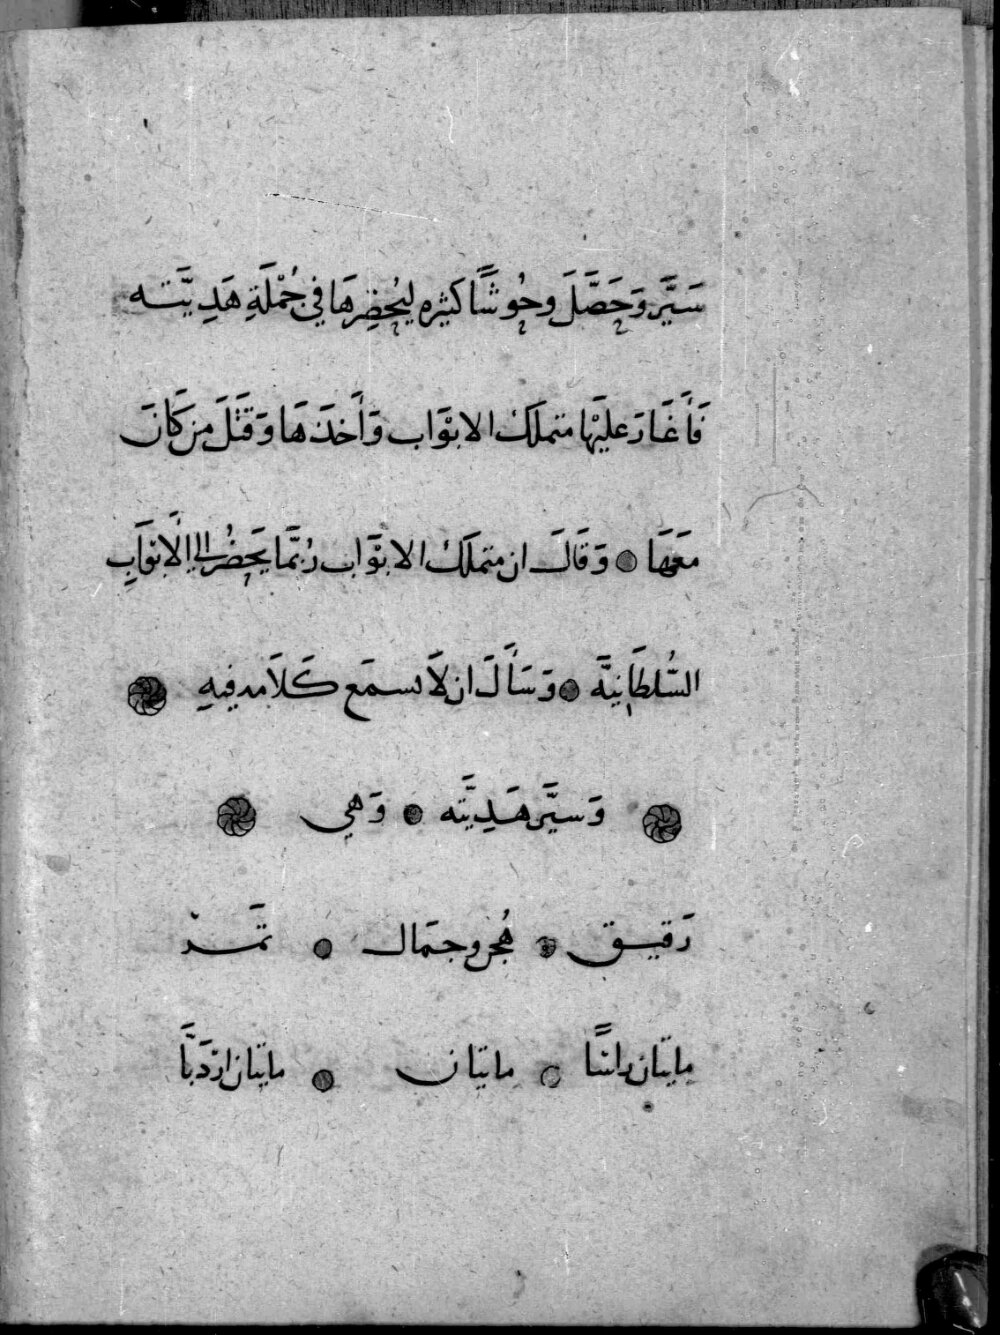 سَيَّرَ وَحَصَّلَ وحُوشًا كثيره ليُحضِرهَا في جُمْلَةِ هَدِيَّته
فَأَغَارَ عليَهْا متملك الابْوَاب وَأَخذَهَا وَقَتَلَ مِن كَانَ
مَعَهَا ۞ وَقَالَ ان متملك الابوَاب رُبَّمَا يَحضُر الى الَابوَابِ
السُّلطَانِيَّه ۞ وَسَأَلَ ان لَا يسمَع كَلَامه فيهِ ۞
۞ وَسيَّر هَدِيَّته ۞ وَهي ۞
رَقيق ۞ هُجن وجمَال ۞ تَمْر
مايتَان راسًا ۞ مايتَان ۞ مايتَان اردَبًّا